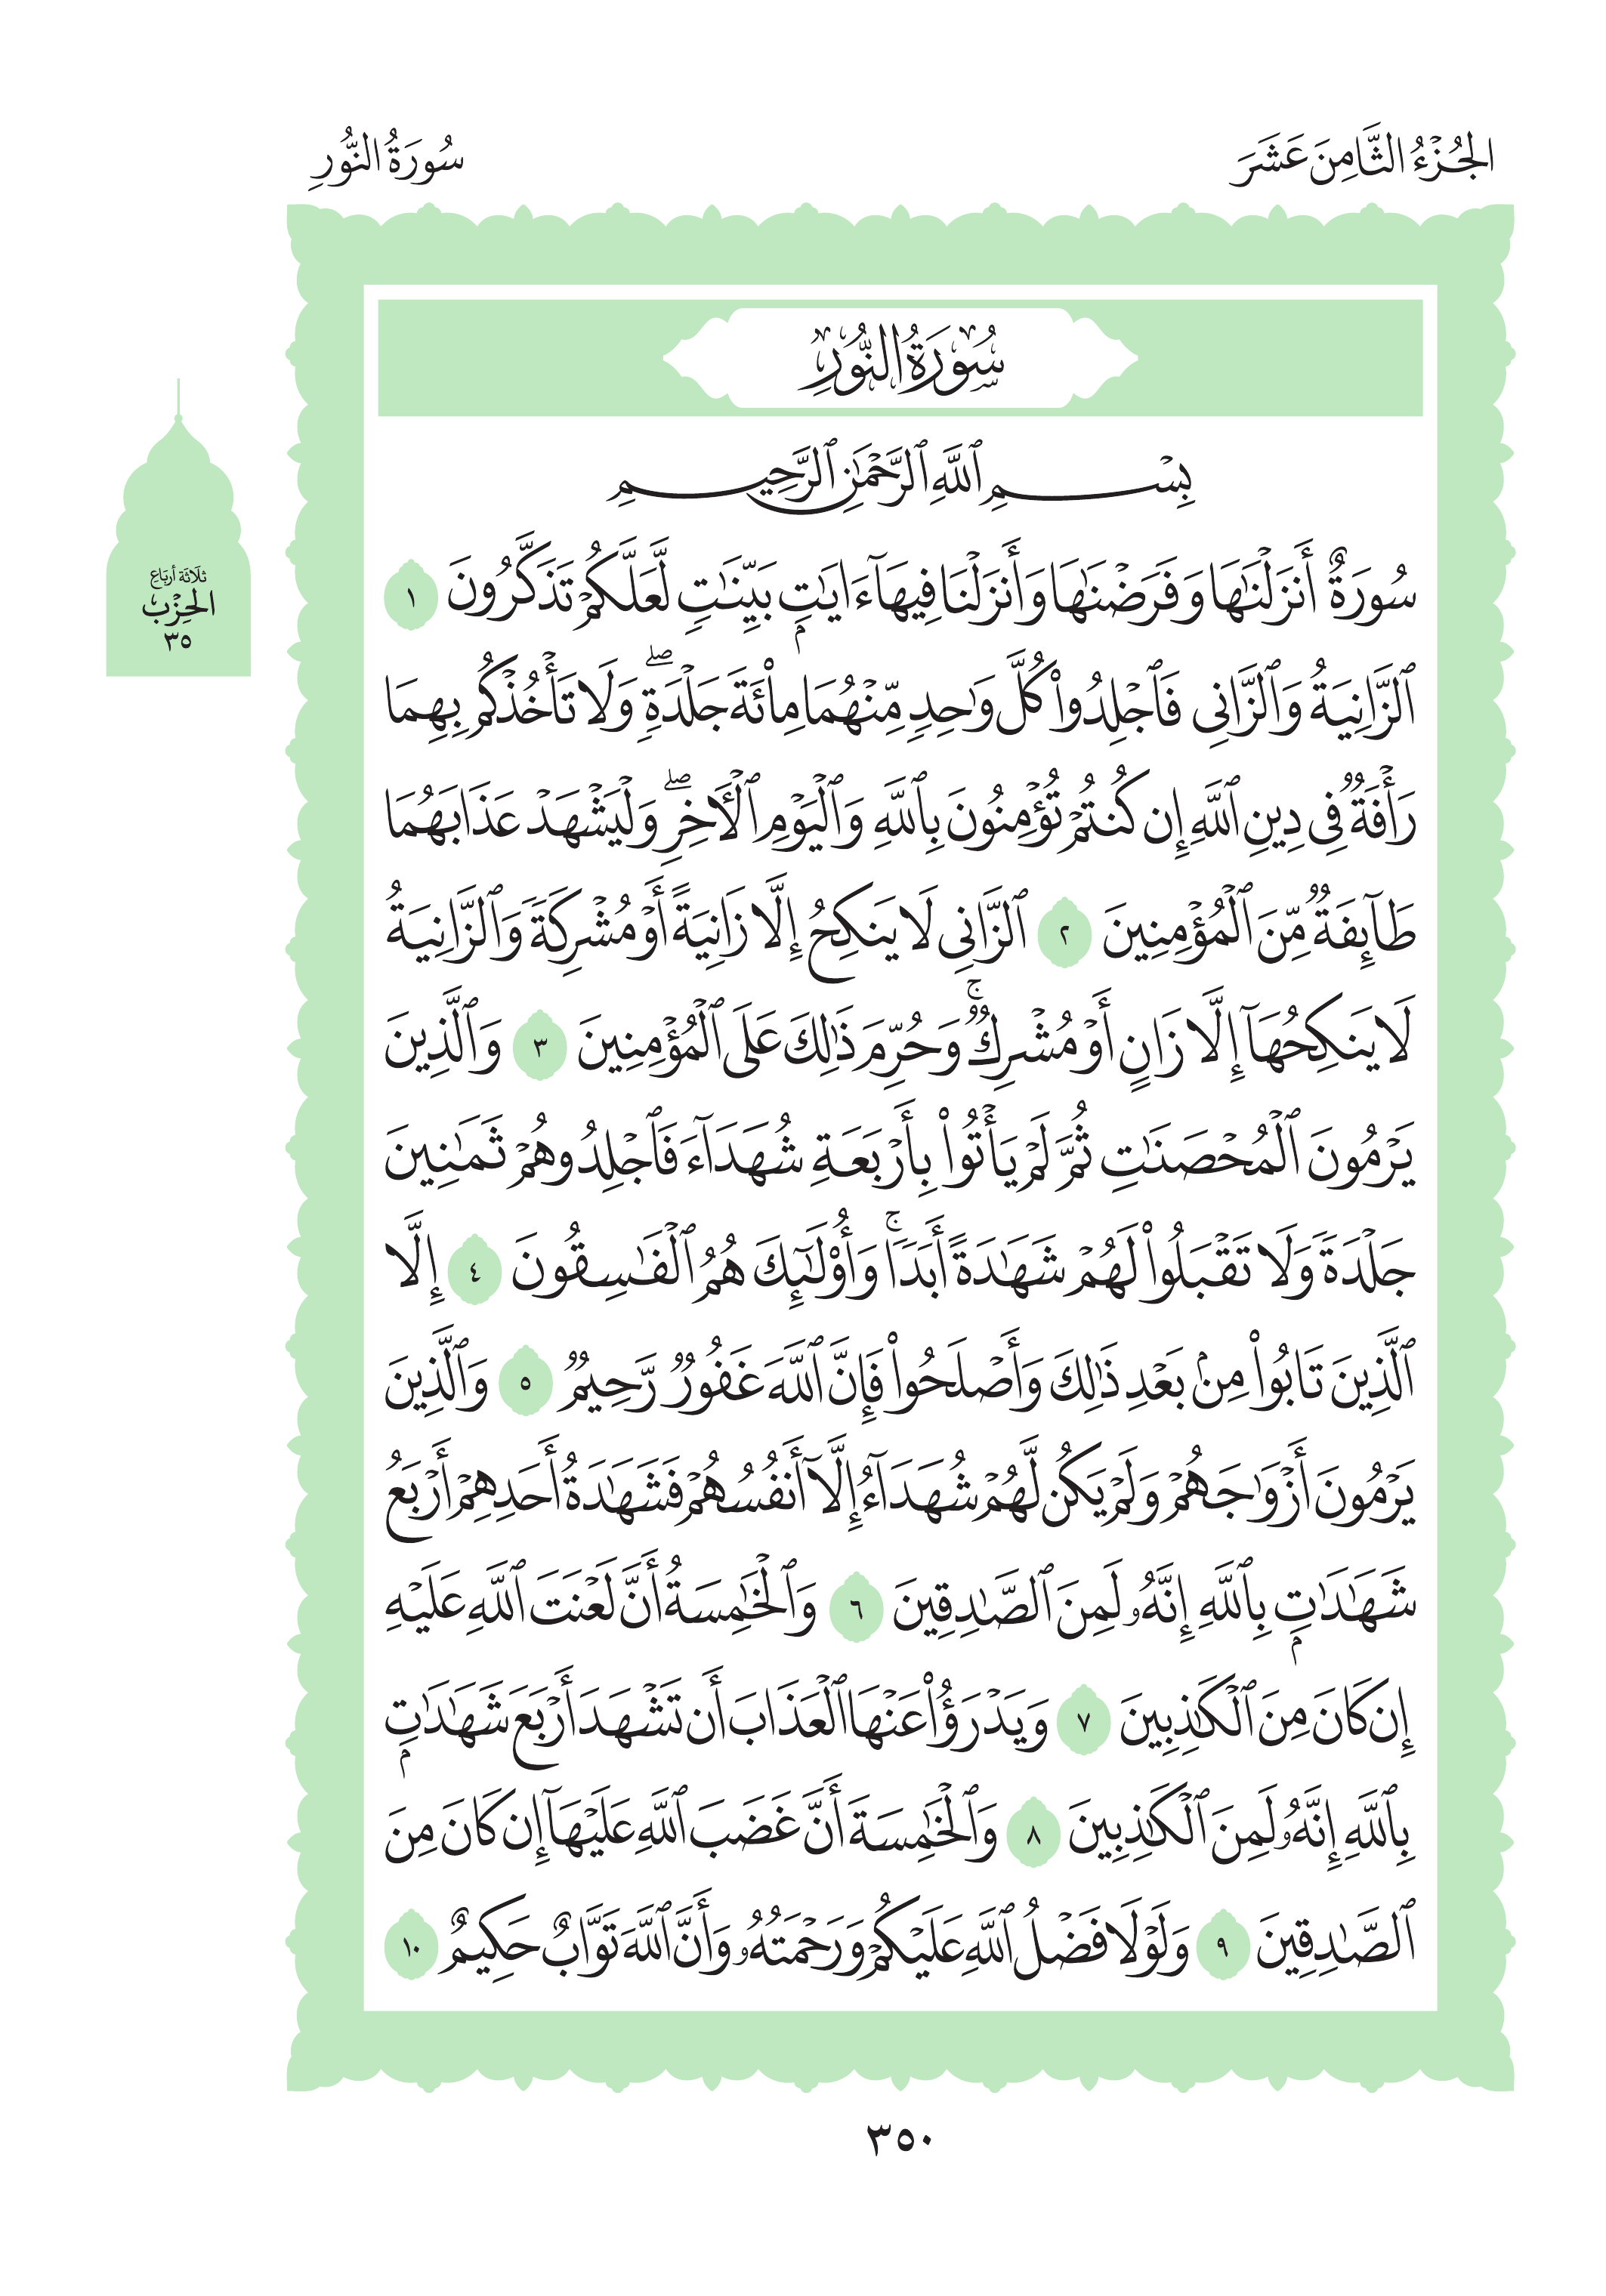 الجُزْءُ الثَّامِنَ عَشَرَ
سُورَةُ النُّورِ
سُورَةُ النُّورِ
ثلاثة أرباع
الحِزْب
٣٥
بِسْمِ ٱللَّهِ ٱلرَّحْمَٰنِ ٱلرَّحِيمِ
سُورَةٌ أَنزَلْنَٰهَا وَفَرَضْنَٰهَا وَأَنزَلْنَا فِيهَآ ءَايَٰتٍۭ بَيِّنَٰتٍ لَّعَلَّكُمْ تَذَكَّرُونَ ١
ٱلزَّانِيَةُ وَٱلزَّانِى فَٱجْلِدُوا۟ كُلَّ وَٰحِدٍ مِّنْهُمَا مِا۟ئَةَ جَلْدَةٍ ۖ وَلَا تَأْخُذْكُم بِهِمَا
رَأْفَةٌ فِى دِينِ ٱللَّهِ إِن كُنتُمْ تُؤْمِنُونَ بِٱللَّهِ وَٱلْيَوْمِ ٱلْـَٔاخِرِ ۖ وَلْيَشْهَدْ عَذَابَهُمَا
طَآئِفَةٌ مِّنَ ٱلْمُؤْمِنِينَ ٢ ٱلزَّانِى لَا يَنكِحُ إِلَّا زَانِيَةً أَوْ مُشْرِكَةً وَٱلزَّانِيَةُ
لَا يَنكِحُهَآ إِلَّا زَانٍ أَوْ مُشْرِكٌ ۚ وَحُرِّمَ ذَٰلِكَ عَلَى ٱلْمُؤْمِنِينَ ٣ وَٱلَّذِينَ
يَرْمُونَ ٱلْمُحْصَنَٰتِ ثُمَّ لَمْ يَأْتُوا۟ بِأَرْبَعَةِ شُهَدَآءَ فَٱجْلِدُوهُمْ ثَمَٰنِينَ
جَلْدَةً وَلَا تَقْبَلُوا۟ لَهُمْ شَهَٰدَةً أَبَدًا ۚ وَأُو۟لَٰٓئِكَ هُمُ ٱلْفَٰسِقُونَ ٤ إِلَّا
ٱلَّذِينَ تَابُوا۟ مِنۢ بَعْدِ ذَٰلِكَ وَأَصْلَحُوا۟ فَإِنَّ ٱللَّهَ غَفُورٌ رَّحِيمٌ ٥ وَٱلَّذِينَ
يَرْمُونَ أَزْوَٰجَهُمْ وَلَمْ يَكُن لَّهُمْ شُهَدَآءُ إِلَّآ أَنفُسُهُمْ فَشَهَٰدَةُ أَحَدِهِمْ أَرْبَعُ
شَهَٰدَٰتٍۭ بِٱللَّهِ إِنَّهُۥ لَمِنَ ٱلصَّٰدِقِينَ ٦ وَٱلْخَٰمِسَةُ أَنَّ لَعْنَتَ ٱللَّهِ عَلَيْهِ
إِن كَانَ مِنَ ٱلْكَٰذِبِينَ ٧ وَيَدْرَؤُا۟ عَنْهَا ٱلْعَذَابَ أَن تَشْهَدَ أَرْبَعَ شَهَٰدَٰتٍۭ
بِٱللَّهِ إِنَّهُۥ لَمِنَ ٱلْكَٰذِبِينَ ٨ وَٱلْخَٰمِسَةَ أَنَّ غَضَبَ ٱللَّهِ عَلَيْهَآ إِن كَانَ مِنَ
ٱلصَّٰدِقِينَ ٩ وَلَوْلَا فَضْلُ ٱللَّهِ عَلَيْكُمْ وَرَحْمَتُهُۥ وَأَنَّ ٱللَّهَ تَوَّابٌ حَكِيمٌ ١٠
٣٥٠